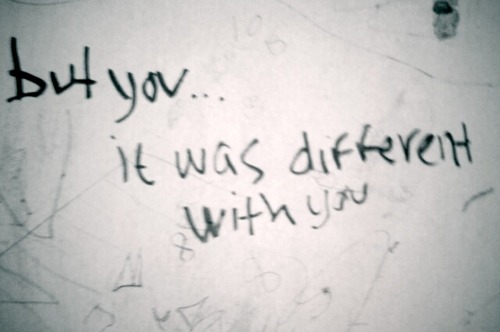 but you...
it was different
with you